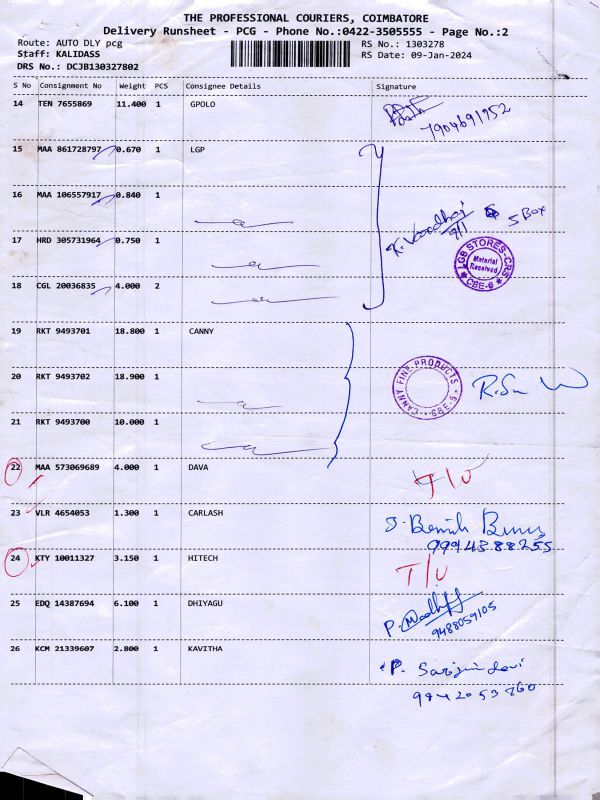 THE PROFESSIONAL COURIERS, COIMBATORE
Delivery Runsheet - PCG - Phone No.:0422-3505555 - Page No.:2
Route: AUTO DLY pcg RS No.: 1303278
Staff: KALIDASS RS Date: 09-Jan-2024
DRS No.: DCJB130327802
S No Consignment No Weight PCS Consignee Details Signature
14 TEN 7655869 11.400 1 GPOLO
7904691952
15 MAA 861728797 0.670 1 LGP
16 MAA 106557917 0.840 1
5 Box
9/1
17 HRD 305731964 0.750 1
LGB STORES-CRS
Material
Received
CBE-6
18 CGL 20036835 4.000 2
19 RKT 9493701 18.800 1 CANNY
20 RKT 9493702 18.900 1
CANNY FINE PRODUCTS
CBE-6
21 RKT 9493700 10.000 1
22 MAA 573069689 4.000 1 DAVA T/U
23 VLR 4654053 1.300 1 CARLASH
9994388255
24 KTY 10011327 3.150 1 HITECH T/U
25 EDQ 14387694 6.100 1 DHIYAGU
9488059105
26 KCM 21339607 2.800 1 KAVITHA